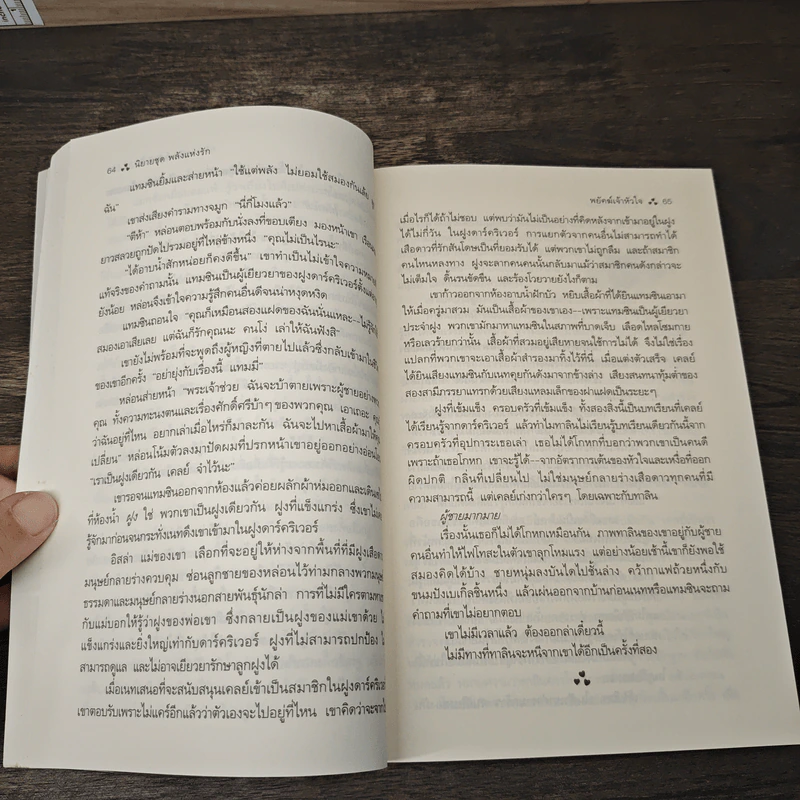 64 นิยายชุด พลังแห่งรัก
แทมซินยิ้มและส่ายหน้า “ใช้แต่พลัง ไม่ยอมใช้สมองกันเล้ย
ฉัน”
เขาส่งเสียงคำรามทางจมูก “นี่กี่โมงแล้ว”
“ตีห้า” หล่อนตอบพร้อมกับนั่งลงที่ขอบเตียง มองหน้าเขา
ยาวสลวยถูกปัดไปรวมอยู่ที่ไหล่ข้างหนึ่ง “คุณไม่เป็นไรนะ”
“ได้อาบน้ำสักหน่อยก็คงดีขึ้น” เขาทำเป็นไม่เข้าใจความ
แท้จริงของคำถามนั้น แทมซินเป็นผู้เยียวยาของฝูงดาร์คริเวอร์ตั้งแต่
ยังน้อย หล่อนจึงเข้าใจความรู้สึกคนอื่นดีจนน่าหงุดหงิด
แทมซินถอนใจ “คุณก็เหมือนสองแฝดของฉันนั่นแหละ--ไม่
สมองเอาเสียเลย แต่ฉันก็รักคุณนะ คนโง่ เล่าให้ฉันฟังสิ”
เขายังไม่พร้อมที่จะพูดถึงผู้หญิงที่ตายไปแล้วซึ่งกลับเข้ามาใน
ของเขาอีกครั้ง “อย่ายุ่งกับเรื่องนี้ แทมมี่”
หล่อนส่ายหน้า “พระเจ้าช่วย ฉันจะบ้าตายเพราะผู้ชายอย่าง
คุณ ทั้งความทะนงตนและเรื่องศักดิ์ศรีบ้าๆ ของพวกคุณ เอาเถอะ
ว่าฉันอยู่ที่ไหน อยากเล่าเมื่อไหร่ก็มาละกัน ฉันจะไปหาเสื้อผ้ามาให้
เปลี่ยน” หล่อนโน้มตัวลงมาปัดผมที่ปรกหน้าเขาอยู่ออกอย่างอ่อนโยน
“เราเป็นฝูงเดียวกัน เคลย์ จำไว้นะ”
เขารอจนแทมซินออกจากห้องแล้วค่อยผลักผ้าห่มออกและเดิน
ที่ห้องน้ำ ฝูง ใช่ พวกเขาเป็นฝูงเดียวกัน ฝูงที่แข็งแกร่ง ซึ่งเขาไม่
รู้จักมาก่อนจนกระทั่งเนทดึงเขาเข้ามาในฝูงดาร์คริเวอร์
อิสล่า แม่ของเขา เลือกที่จะอยู่ให้ห่างจากพื้นที่ที่มีฝูงเสือดาว
มนุษย์กลายร่างควบคุม ซ่อนลูกชายของหล่อนไว้ท่ามกลางพวกมนุษย์
ธรรมดาและมนุษย์กลายร่างนอกสายพันธุ์นักล่า การที่ไม่มีใครตาม
กับแม่บอกให้รู้ว่าฝูงของพ่อเขา ซึ่งกลายเป็นฝูงของแม่เขาด้วย
แข็งแกร่งและยิ่งใหญ่เท่ากับดาร์คริเวอร์ ฝูงที่ไม่สามารถปกป้อง
สามารถดูแล และไม่อาจเยียวยารักษาลูกฝูงได้
เมื่อเนทเสนอที่จะสนับสนุนเคลย์เข้าเป็นสมาชิกในฝูงดาร์คริเวอร์
เขาตอบรับเพราะไม่แคร์อีกแล้วว่าตัวเองจะไปอยู่ที่ไหน เขาคิดว่าจะจาก
พยัคฆ์เจ้าหัวใจ 65
เมื่อไรก็ได้ถ้าไม่ชอบ แต่พบว่ามันไม่เป็นอย่างที่คิดหลังจากเข้ามาอยู่ในฝูง
ได้ไม่กี่วัน ในฝูงดาร์คริเวอร์ การแยกตัวจากคนอื่นไม่สามารถทำได้
เสือดาวที่รักสันโดษเป็นที่ยอมรับได้ แต่พวกเขาไม่ถูกลืม และถ้าสมาชิก
คนไหนหลงทาง ฝูงจะลากคนคนนั้นกลับมาแม้ว่าสมาชิกคนดังกล่าวจะ
ไม่เต็มใจ ดิ้นรนขัดขืน และร้องโวยวายยังไงก็ตาม
เขาก้าวออกจากห้องอาบน้ำฝักบัว หยิบเสื้อผ้าที่ได้ยินแทมซินเอามา
ให้เมื่อครู่มาสวม มันเป็นเสื้อผ้าของเขาเอง--เพราะแทมซินเป็นผู้เยียวยา
ประจำฝูง พวกเขามักมาหาแทมซินในสภาพที่บาดเจ็บ เลือดไหลโซมกาย
หรือเลวร้ายกว่านั้น เสื้อผ้าที่สวมอยู่เสียหายจนใช้การไม่ได้ จึงไม่ใช่เรื่อง
แปลกที่พวกเขาจะเอาเสื้อผ้าสำรองมาทิ้งไว้ที่นี่ เมื่อแต่งตัวเสร็จ เคลย์
ได้ยินเสียงแทมซินกับเนทคุยกันดังมาจากข้างล่าง เสียงสนทนาทุ้มต่ำของ
สองสามีภรรยาแทรกด้วยเสียงแหลมเล็กของฝาแฝดเป็นระยะๆ
ฝูงที่เข้มแข็ง ครอบครัวที่เข้มแข็ง ทั้งสองสิ่งนี้เป็นบทเรียนที่เคลย์
ได้เรียนรู้จากดาร์คริเวอร์ แล้วทำไมทาลินไม่เรียนรู้บทเรียนเดียวกันนี้จาก
ครอบครัวที่อุปการะเธอเล่า เธอไม่ได้โกหกที่บอกว่าพวกเขาเป็นคนดี
เพราะถ้าเธอโกหก เขาจะรู้ได้--จากอัตราการเต้นของหัวใจและเหงื่อที่ออก
ผิดปกติ กลิ่นที่เปลี่ยนไป ไม่ใช่มนุษย์กลายร่างเสือดาวทุกคนที่มี
ความสามารถนี้ แต่เคลย์เก่งกว่าใครๆ โดยเฉพาะกับทาลิน
ผู้ชายมากมาย
เรื่องนั้นเธอก็ไม่ได้โกหกเหมือนกัน ภาพทาลินของเขาอยู่กับผู้ชาย
คนอื่นทำให้ไฟโทสะในตัวเขาลุกโหมแรง แต่อย่างน้อยเช้านี้เขาก็ยังพอใช้
สมองคิดได้บ้าง ชายหนุ่มลงบันไดไปชั้นล่าง คว้ากาแฟถ้วยหนึ่งกับ
ขนมปังเบเกิ้ลชิ้นหนึ่ง แล้วเผ่นออกจากบ้านก่อนเนทหรือแทมซินจะถาม
คำถามที่เขาไม่อยากตอบ
เขาไม่มีเวลาแล้ว ต้องออกล่าเดี๋ยวนี้
ไม่มีทางที่ทาลินจะหนีจากเขาได้อีกเป็นครั้งที่สอง